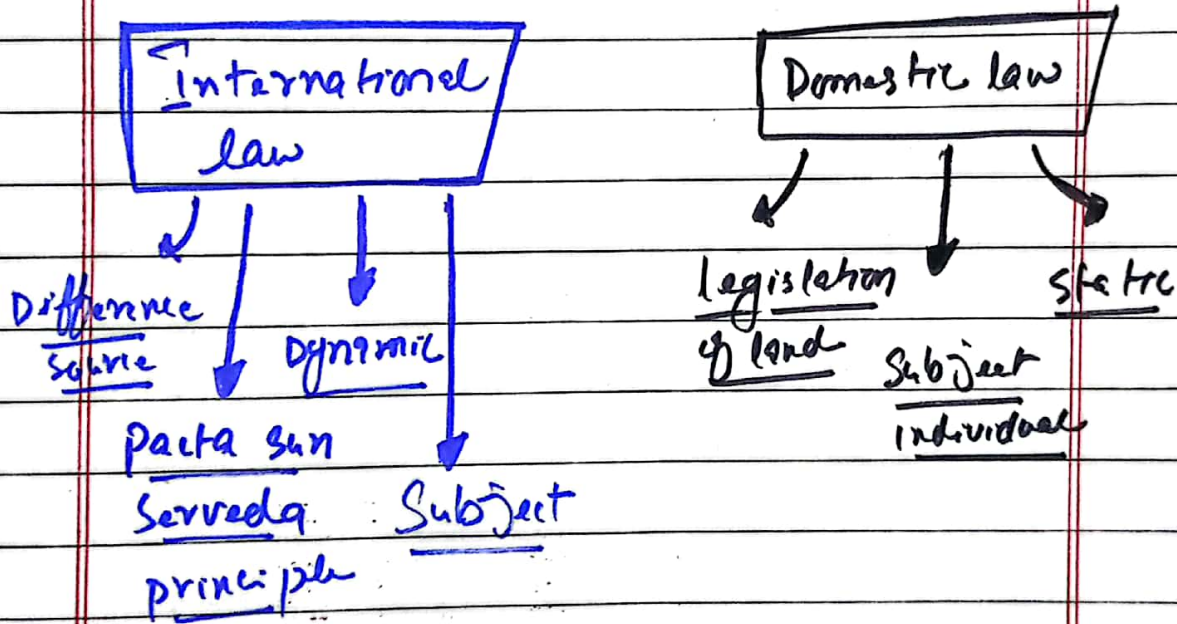 International
law
Difference
source
Pacta sun
Serveda
principle
Dynamic
Subject
Domestic law
legislation
of land
Subject
individual
static